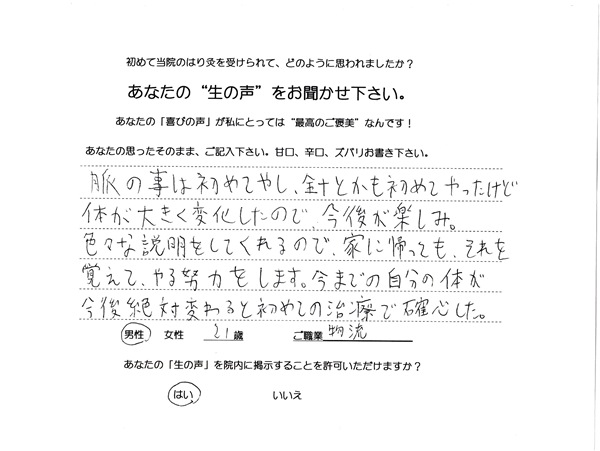 初めて当院のはり灸を受けられて、どのように思われましたか？
あなたの“生の声”をお聞かせ下さい。
あなたの「喜びの声」が私にとっては“最高のご褒美”なんです！
あなたの思ったそのまま、ご記入下さい。甘口、辛口、ズバリお書き下さい。
脈の事は初めてやし、針とかも初めてやったけど
体が大きく変化したので、今後が楽しみ。
色々な説明をしてくれるので、家に帰っても、それを
覚えて、やる努力をします。今までの自分の体が
今後絶対変わると初めての治療で確心した。
男性 女性 21歳 ご職業 物流
あなたの「生の声」を院内に掲示することを許可いただけますか？
はい いいえ